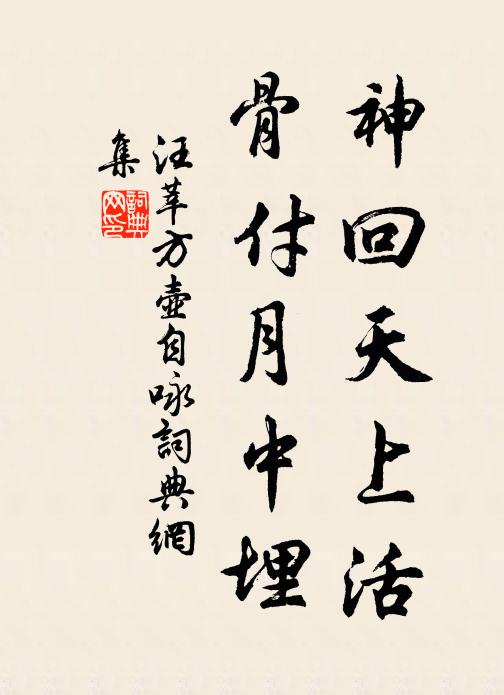 神回天上活
骨付月中埋
汪莘方壺自咏詞典網
集
詞典
网印